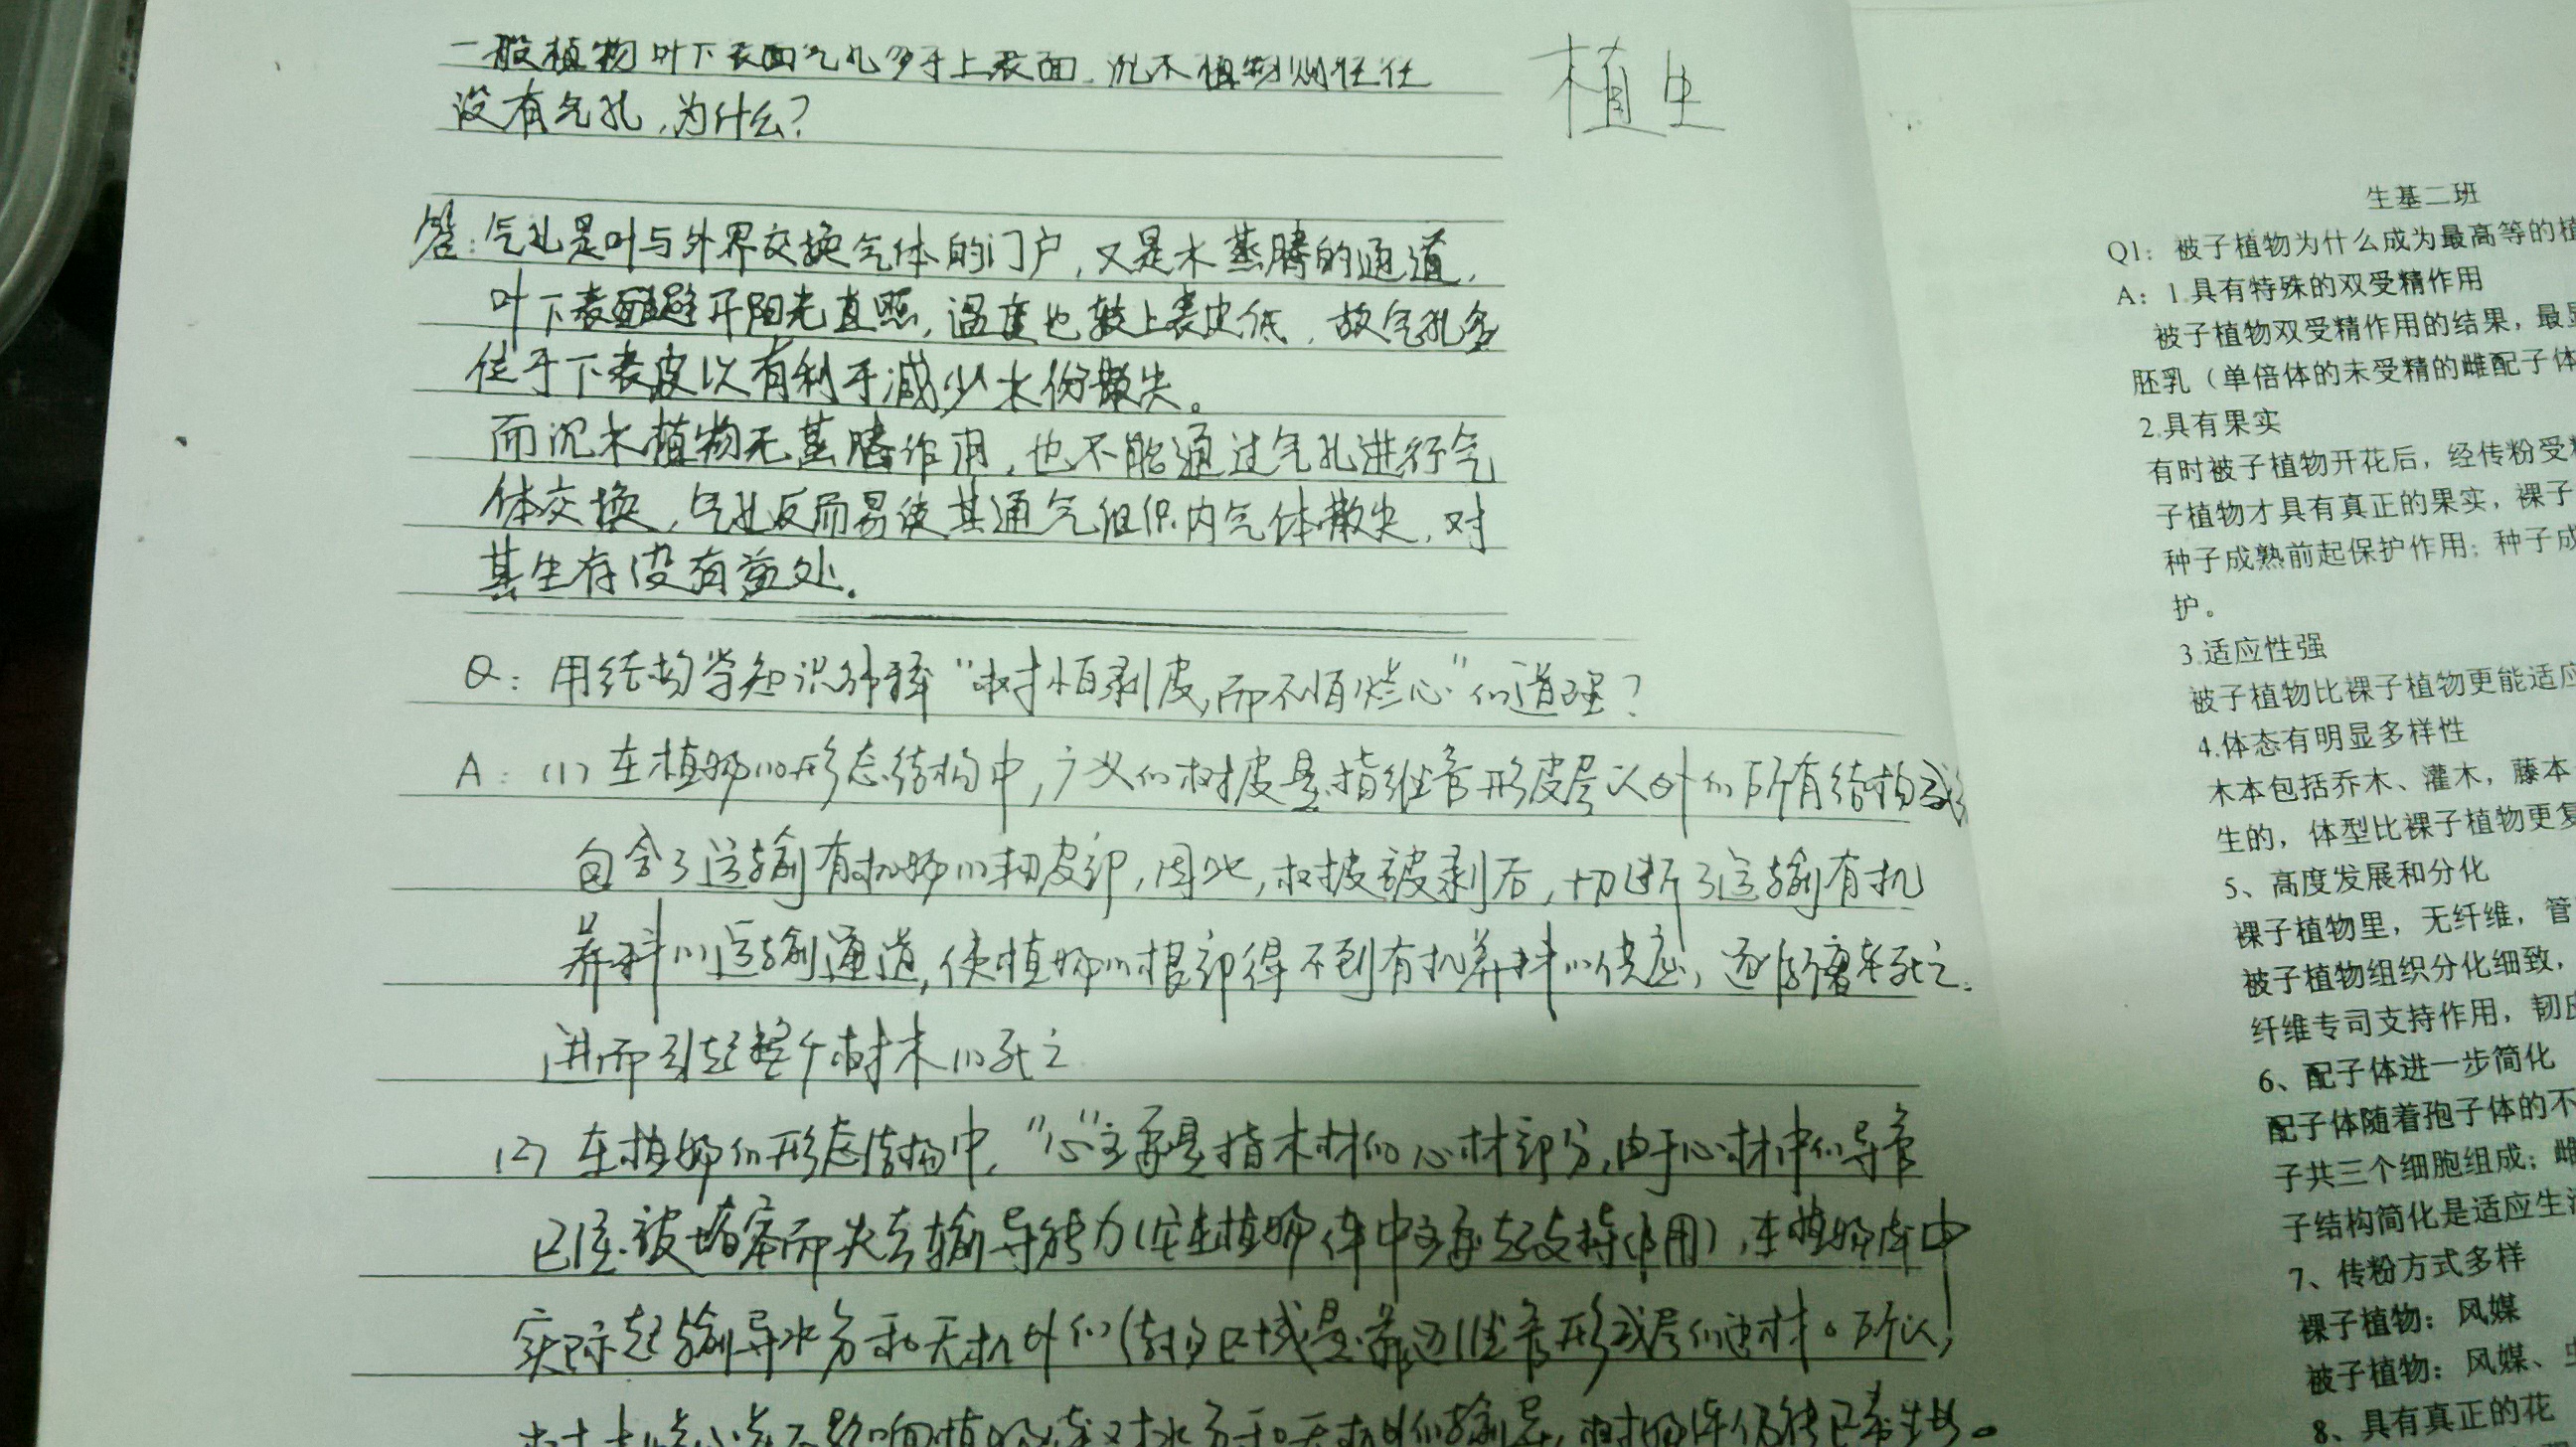 一般植物叶下表面气孔多于上表面,沉水植物则往往
没有气孔,为什么?
植生
答:气孔是叶与外界交换气体的门户,又是水蒸腾的通道,
叶下表面避开阳光直照,温度也较上表皮低,故气孔多
位于下表皮以有利于减少水份散失。
而沉水植物无蒸腾作用,也不能通过气孔进行气
体交换,气孔反而易使其通气组织内气体散失,对
其生存没有益处.
Q:用结构学知识解释“树怕剥皮,而不怕烂心”的道理?
A:(1)在植物的形态结构中,广义的树皮是指维管形皮层以外的所有结构
包含了运输有机物的韧皮部,因此,树皮被剥后,切断了运输有机
养料的运输通道,使植物的根部得不到有机养料的供应,逐渐死亡.
进而引起整个树木的死亡
(2)在植物的形态结构中,“心”主要是指木材的心材部分,由于心材中的导管
已经被堵塞而失去输导能力(在植物体中主要起支持作用),在植物体中
实际起输导水分和无机的区域是靠近维管形成层的边材。所以,
树木烂心不影响植物对水分和无机的输导,树仍能正常生长。
生基二班
Q1:被子植物为什么成为最高等的植
A:1.具有特殊的双受精作用
被子植物双受精作用的结果,最显
胚乳(单倍体的未受精的雌配子体
2.具有果实
有时被子植物开花后,经传粉受精
子植物才具有真正的果实,裸子
种子成熟前起保护作用;种子成
护。
3.适应性强
被子植物比裸子植物更能适应
4.体态有明显多样性
木本包括乔木、灌木,藤本
生的,体型比裸子植物更复
5、高度发展和分化
裸子植物里,无纤维,管
被子植物组织分化细致,
纤维专司支持作用,韧皮
6、配子体进一步简化
配子体随着孢子体的不
子共三个细胞组成;雌
子结构简化是适应生活
7、传粉方式多样
裸子植物:风媒
被子植物:风媒、虫
8、具有真正的花